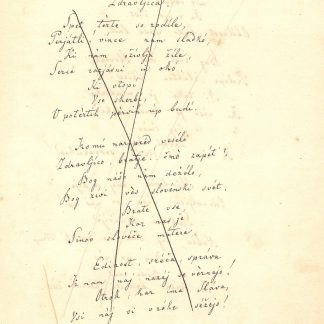 Zdravljica.
Spet terte so rodile,
Perjatli, vince nam sladkó,
Ki nam oživlja žile,
Sercé razjasni in okó
Ki otopi
Vse skerbi,
V potertih persih up budi.
Komú narpred veselo
Zdravljico, bratje, čmò zapét'!
Bog našo nam deželo,
Bog živi ves slovénski svét.
Brate vse,
Kar nas je
Sinóv slovéče matere.
Edinost, sréča, sprava
K nam naj nazaj se vernejo!
Otrók, kar ima Slava,
Vsi naj si v róke sežejo!